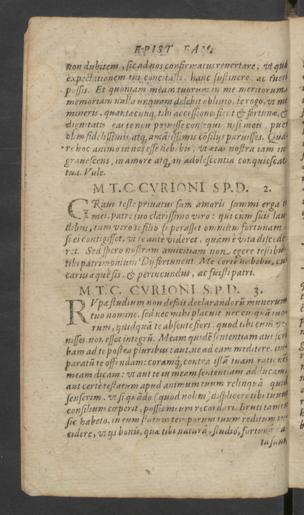 EPIST. FAM.
non dubitem, sic ad nos confirmatus revertare; ut quā
expectationem tui concitasti, hanc sustinere ac tueri
possis. Et quoniam meam tuorum in me meritorum
memoriam nulla unquam delebit oblivio, te rogo, ut me
mineris, quantæcunq. tibi accessiones fient & fortunæ, &
dignitatis eas te non potuisse consequi, nisi meis puer
olim fidelissimis, atq, amātissimis cōsiliis paruisses. Qua-
re hoc animo in nos esse debebis, ut ætas nostra iam in
gravescens, in amore atq, in adolescentia conquiescat
tua. Vale.
M. T. C. CVRIONI S. P. D. 2.
GRavi teste privatus sum amoris summi erga te
mei, patre tuo clarissimo viro: qui cum suis lau
dibus, tum vero te filio superasset omnium fortunam,
si ei contigisset, ut te ante videret, quam è vita discede
ret. Sed spero nostram amicitiam non egere testibus.
tibi patrimonium Dij fortunent. Me certè habebis, cui
carus æquè sis, & periucundus, ac fuisti patri.
M. T. C. CVRIONI S. P. D. 3.
RVpæ studium non defuit declarandorū munerum
tuo nomine, sed nec mihi placuit nec cuiquā tuo-
rum, quidquā te absente fieri, quod tibi cum ve-
nisses non esset integrū. Meam quidē sententiam aut scri
bam ad te postea pluribus: aut, ne ad eam meditere, im
paratū te offendam: coramq, contra istā tuam rationē
meam dicam: ut aut te in meam sententiam adducam,
aut certè testatum apud animum tuum relinquā quid
senserim. ut si quādo (quod nolim) displicere tibi tuum
consilium cœperit, possis meum recordari. Brevi tamen
sic habeto, in eum statum temporum tuum reditum in-
cidere, ut ijs bonis, quæ tibi natura, studio, fortuna